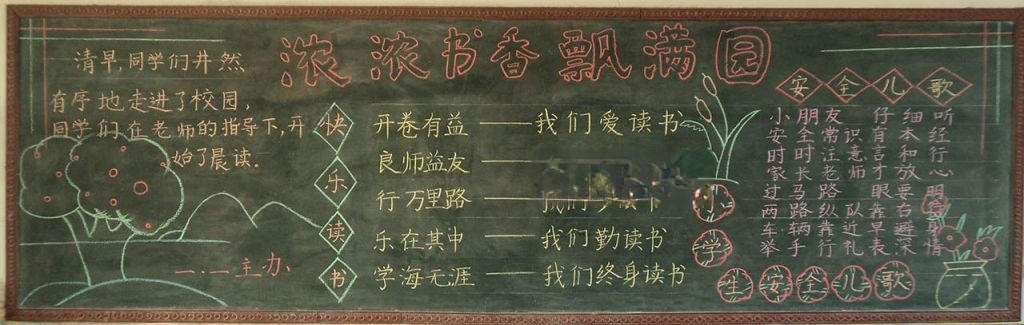 浓浓书香飘满园
清早,同学们井然
有序地走进了校园,
同学们在老师的指导下,开
始了晨读.
一.一主办
快乐读书
开卷有益——我们爱读书
良师益友——
行万里路——我们
乐在其中——我们勤读书
学海无涯——我们终身读书
安全儿歌
小朋友 仔细听
安全常识有本经
时时注意言和行
家长老师才放心
过马路 眼要明
两路纵队靠右
车辆靠近早避
举手行礼表情
小学生安全儿歌